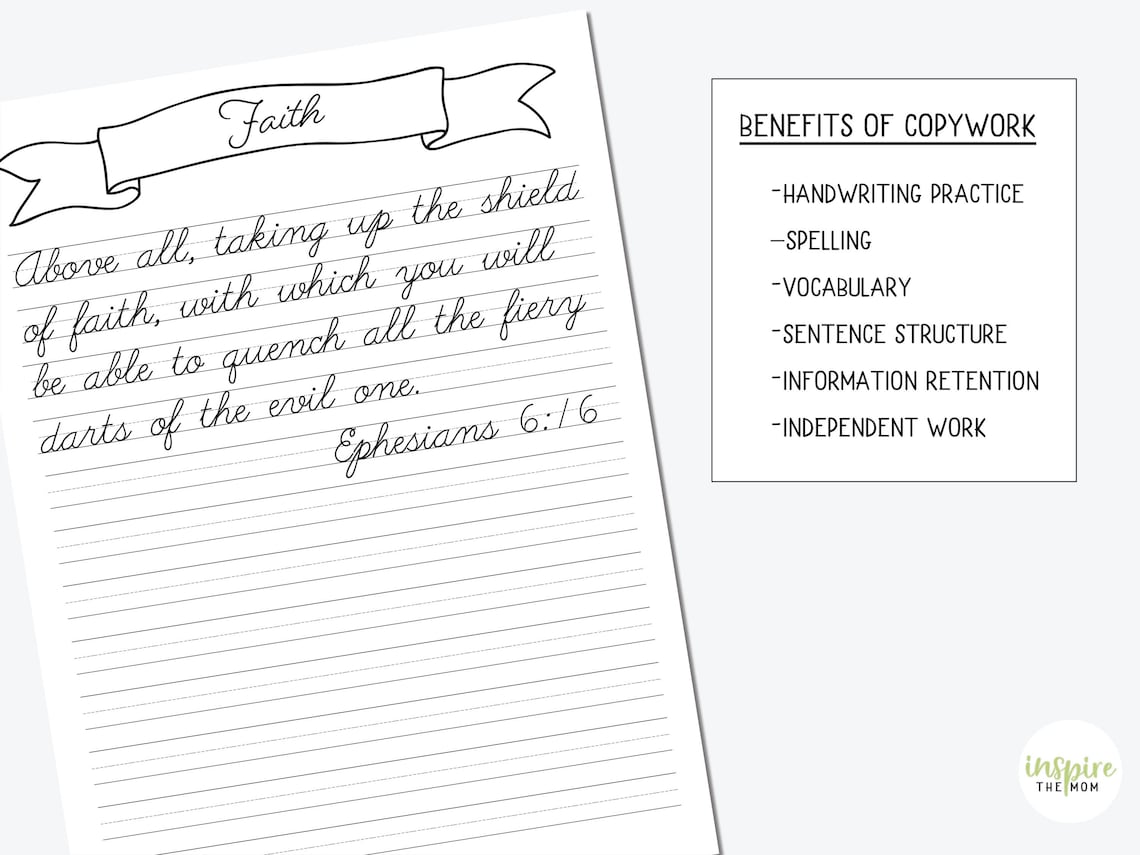 Faith
Above all, taking up the shield
of faith, with which you will
be able to quench all the fiery
darts of the evil one.
Ephesians 6:16
BENEFITS OF COPYWORK
-HANDWRITING PRACTICE
-SPELLING
-VOCABULARY
-SENTENCE STRUCTURE
-INFORMATION RETENTION
-INDEPENDENT WORK
inspire
THE MOM